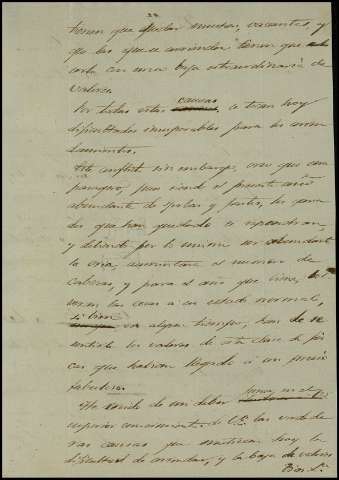 tienen que quedar muchos, vacantes, y
que los que se arriendan tienen que
con una baja estraordinaria de
valores.
Por todas estas causas, se tocan hoy
dificultades insuperables para los arren
damientos.
Este conflicto sin embargo, creo que sea
pasagero, pues siendo el presente año
abundante de yerbas y pastos, los gana
dos que han quedado se repondran,
y debiendo por lo mismo ser abundante
la cria, aumentará el numero de
cabezas, y para el año que viene,
las cosas á su estado normal,
si bien en algun tiempo, han de re
sentirse los valores de esta clase de fin
cas que habian llegado á un precio
fabuloso.
de un deber
superior conocimiento de V.E. las verdade
ras causas que motivan hoy la
dificultad de arrendar, y la baja de valores
Dios